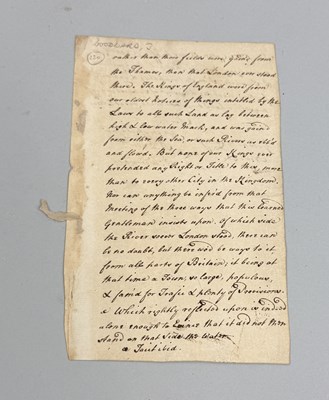 Woodward, J.
rather than their fields were, gain'd from
the Thames, than that London you stood
there. The Kings of England were from
our oldest notices of things intitled by the
Laws to all such Land as lay between
high & low water Mark, and was gain'd
from either the Sea, or such Rivers as eb'd
and flow'd. But none of our Kings ever
pretended any Right or Title to this, more
than to every other City in the Kingdom.
Nor can anything be infer'd from that
Meeting of the three ways that this learned
Gentleman insists upon. Of which side
the River soever London stood, there can
be no doubt, but there wod be ways to it
form all parts of Britain; it being at
that time a Town, so large, populous,
& fam'd for Trafic & plenty of Provisions.
a Which rightly reflected upon is indeed
alone enough to Evince that it did not then
stand on that Side the Water
a Tacit. ibid.